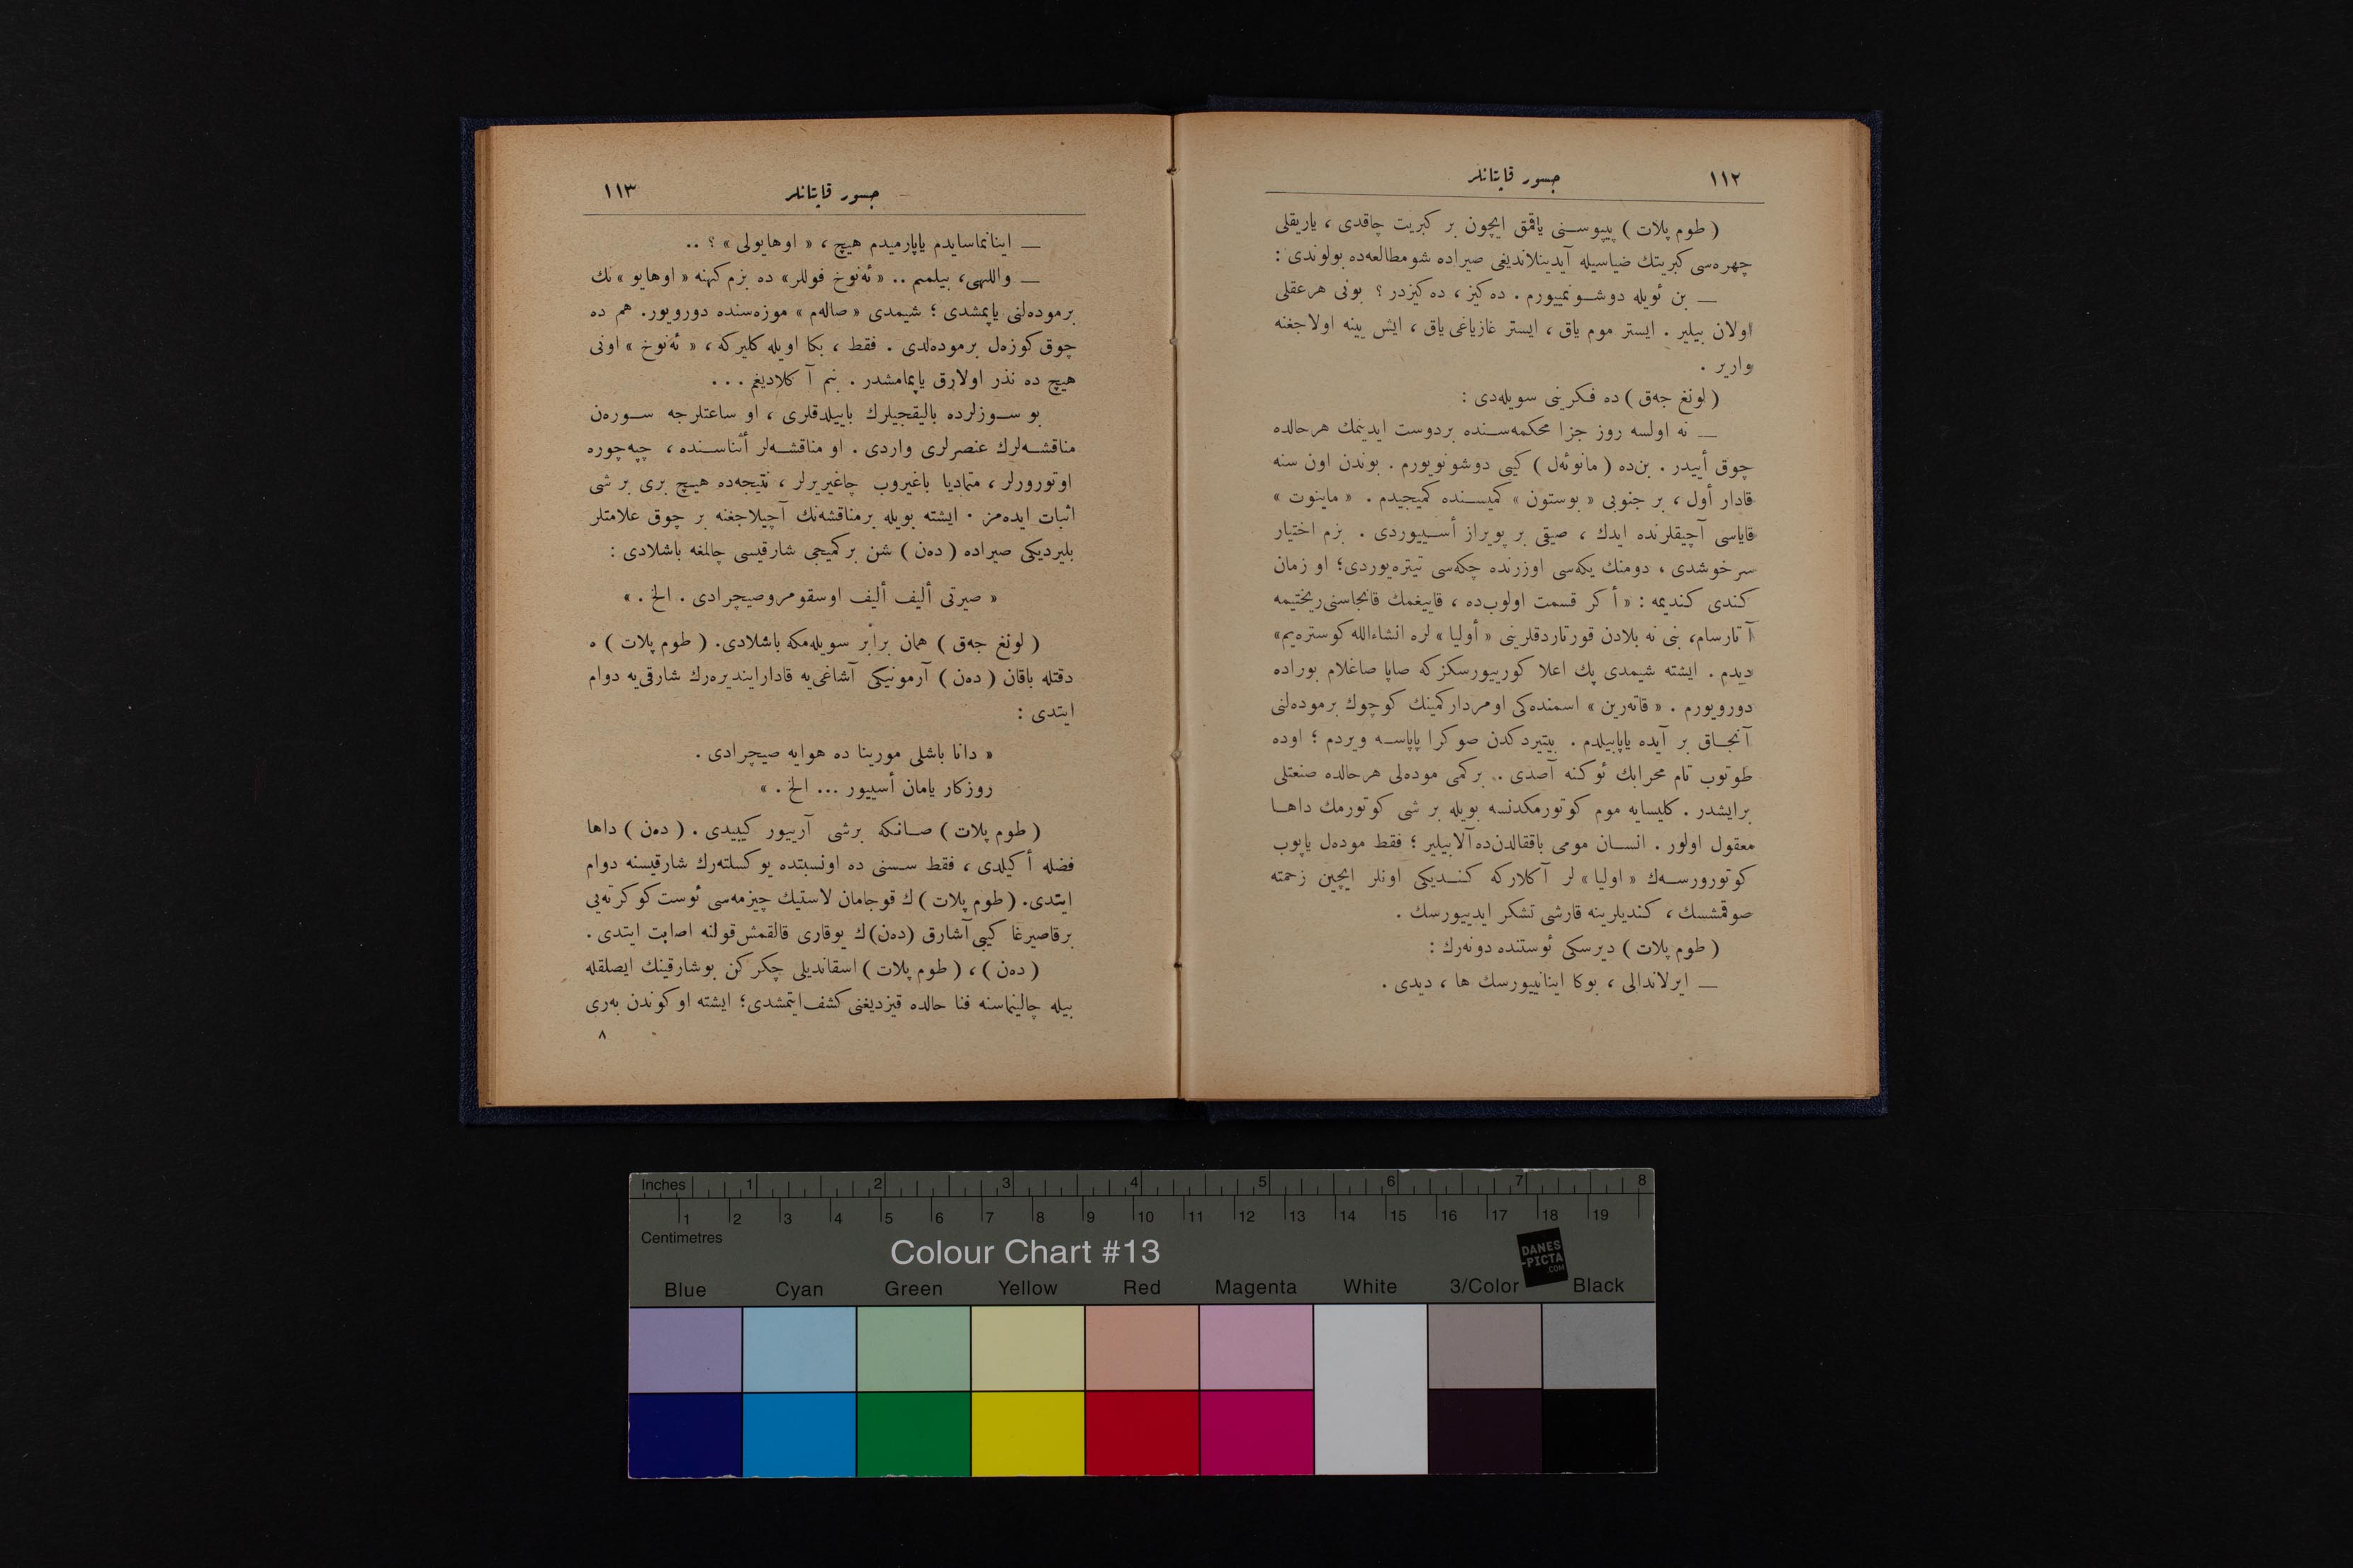 ١١٢
جسور قاپتانلر
( طوم پلات ) پیپوسنی یاقمق ایچون بر كبریت چاقدی ، یاریقلی
چهره‌سی كبریتك ضیاسیله آیدینلاندیغی صیراده شومطالعه‌ده بولوندی :
— بن ئویله دوشونمییورم . ده‌كیز ، ده‌كیزدر ؟ بونی هرعقلی
اولان بیلیر . ایستر موم یاق ، ایستر غازیاغی یاق ، ایش یینه اولاجغنه
واریر .
( لونغ جه‌ق ) ده فكرینی سویله‌دی :
— نه اولسه روز جزا محكمه‌سنده بردوست ایدینمك هرحالده
چوق أییدر . بن‌ده ( مانوئه‌ل ) كیبی دوشونویورم . بوندن اون سنه
قادار أول ، بر جنوبی « بوستون » كمیسنده كمیجیدم . « ماینوت »
قایاسی آچیقلرنده ایدك ، صیقی بر پویراز أسییوردی . بزم اختیار
سرخوشدی ، دومنك یكه‌سی اوزرنده چكه‌سی تیتره‌یوردی؛ او زمان
كندی كندیمه : « أكر قسمت اولوب‌ده ، قاییغمك قانجاسنی ریختیمه
آتارسام، بنی نه بلادن قورتاردقلرینی « أولیا » لره انشاءالله كوستره‌یم»
دیدم . ایشته شیمدی پك اعلا كورییورسكزكه صاپا صاغلام بوراده
دورویورم . « قاته‌رین » اسمنده‌كی اومردار كمینك كوچوك برموده‌لنی
آنجاق بر آیده یاپابیلدم . بیتیردكدن صوكرا پاپاسه ویردم ؛ اوده
طوتوب تام محرابك ئوكنه آصدی . بركمی موده‌لی هرحالده صنعتلی
برایشدر . كلیسایه موم كوتورمكدنسه بویله بر شی كوتورمك داها
معقول اولور . انسان مومی باققالدن‌ده آلابیلیر ؛ فقط موده‌ل یاپوب
كوتورورسه‌ك « اولیا » لر آكلاركه كندیكی اونلر ایچین زحمته
صوقمشسك ، كندیلرینه قارشی تشكر ایدییورسك .
( طوم پلات ) دیرسكی ئوستنده دونه‌رك :
— ایرلاندالی ، بوكا اینانییورسك ها ، دیدی .
جسور قاپتانلر
١١٣
— اینانماسایدم یاپارمیدم هیچ ، « اوهایولی » ؟ ..
— واللهی، بیلمم .. « ئه‌نوخ فوللر» ده بزم كهنه « اوهایو » نك
برموده‌لنی یاپمشدی ؛ شیمدی « صاله‌م » موزه‌سنده دورویور. هم ده
چوق كوزه‌ل برموده‌لدی . فقط ، بكا اویله كلیركه ، « ئه‌نوخ » اونی
هیچ ده نذر اولارق یاپمامشدر . بنم آكلادیغم . . .
بو سوزلرده بالیقجیلرك باییلدقلری ، او ساعتلرجه سوره‌ن
مناقشه‌لرك عنصرلری واردی . او مناقشه‌لر أثناسنده ، چپه‌چوره
اوتورورلر ، متمادیا باغیروب چاغیریرلر ، نتیجه‌ده هیچ بری بر شی
اثبات ایده‌مز . ایشته بویله برمناقشه‌نك آچیلاجغنه بر چوق علامتلر
بلیردیكی صیراده ( ده‌ن ) شن بركمیجی شارقیسی چالمغه باشلادی :
« صیرتی ألیف ألیف اوسقومروصیچرادی . الخ . »
( لونغ جه‌ق ) همان برابر سویله‌مكه باشلادی. ( طوم پلات ) ه
دقتله باقان ( ده‌ن ) آرمونیكی آشاغی‌یه قادارایندیره‌رك شارقی‌یه دوام
ایتدی :
« دانا باشلی مورینا ده هوایه صیچرادی .
روزكار یامان أسییور ... الخ . »
( طوم پلات ) صانكه برشی آرییور كیبیدی . ( ده‌ن ) داها
فضله أكیلدی ، فقط سسنی ده اونسبتده یوكسلته‌رك شارقیسنه دوام
ایتدی. ( طوم پلات ) ك قوجامان لاستیك چیزمه‌سی ئوست كوكرته‌یی
برقاصیرغا كیبی آشارق (ده‌ن)ك یوقاری قالقمش قولنه اصابت ایتدی .
( ده‌ن ) ، ( طوم پلات ) اسقاندیلی چكركن بوشارقینك ایصلقله
بیله چالینماسنه فنا حالده قیزدیغنی كشف ایتمشدی؛ ایشته او كوندن به‌ری
٨
Inches 1 2 3 4 5 6 7 8
1 2 3 4 5 6 7 8 9 10 11 12 13 14 15 16 17 18 19
Centimetres
Colour Chart #13
DANES
-PICTA
.COM
Blue Cyan Green Yellow Red Magenta White 3/Color Black